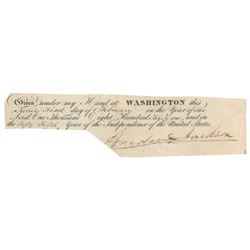 Given under my Hand at WASHINGTON this
Twenty third day of February in the Year of our
Lord One Thousand Eight Hundred thirty one, and in
the Fifty Fifth, Year of the Independence of the United States
Andrew Jackson